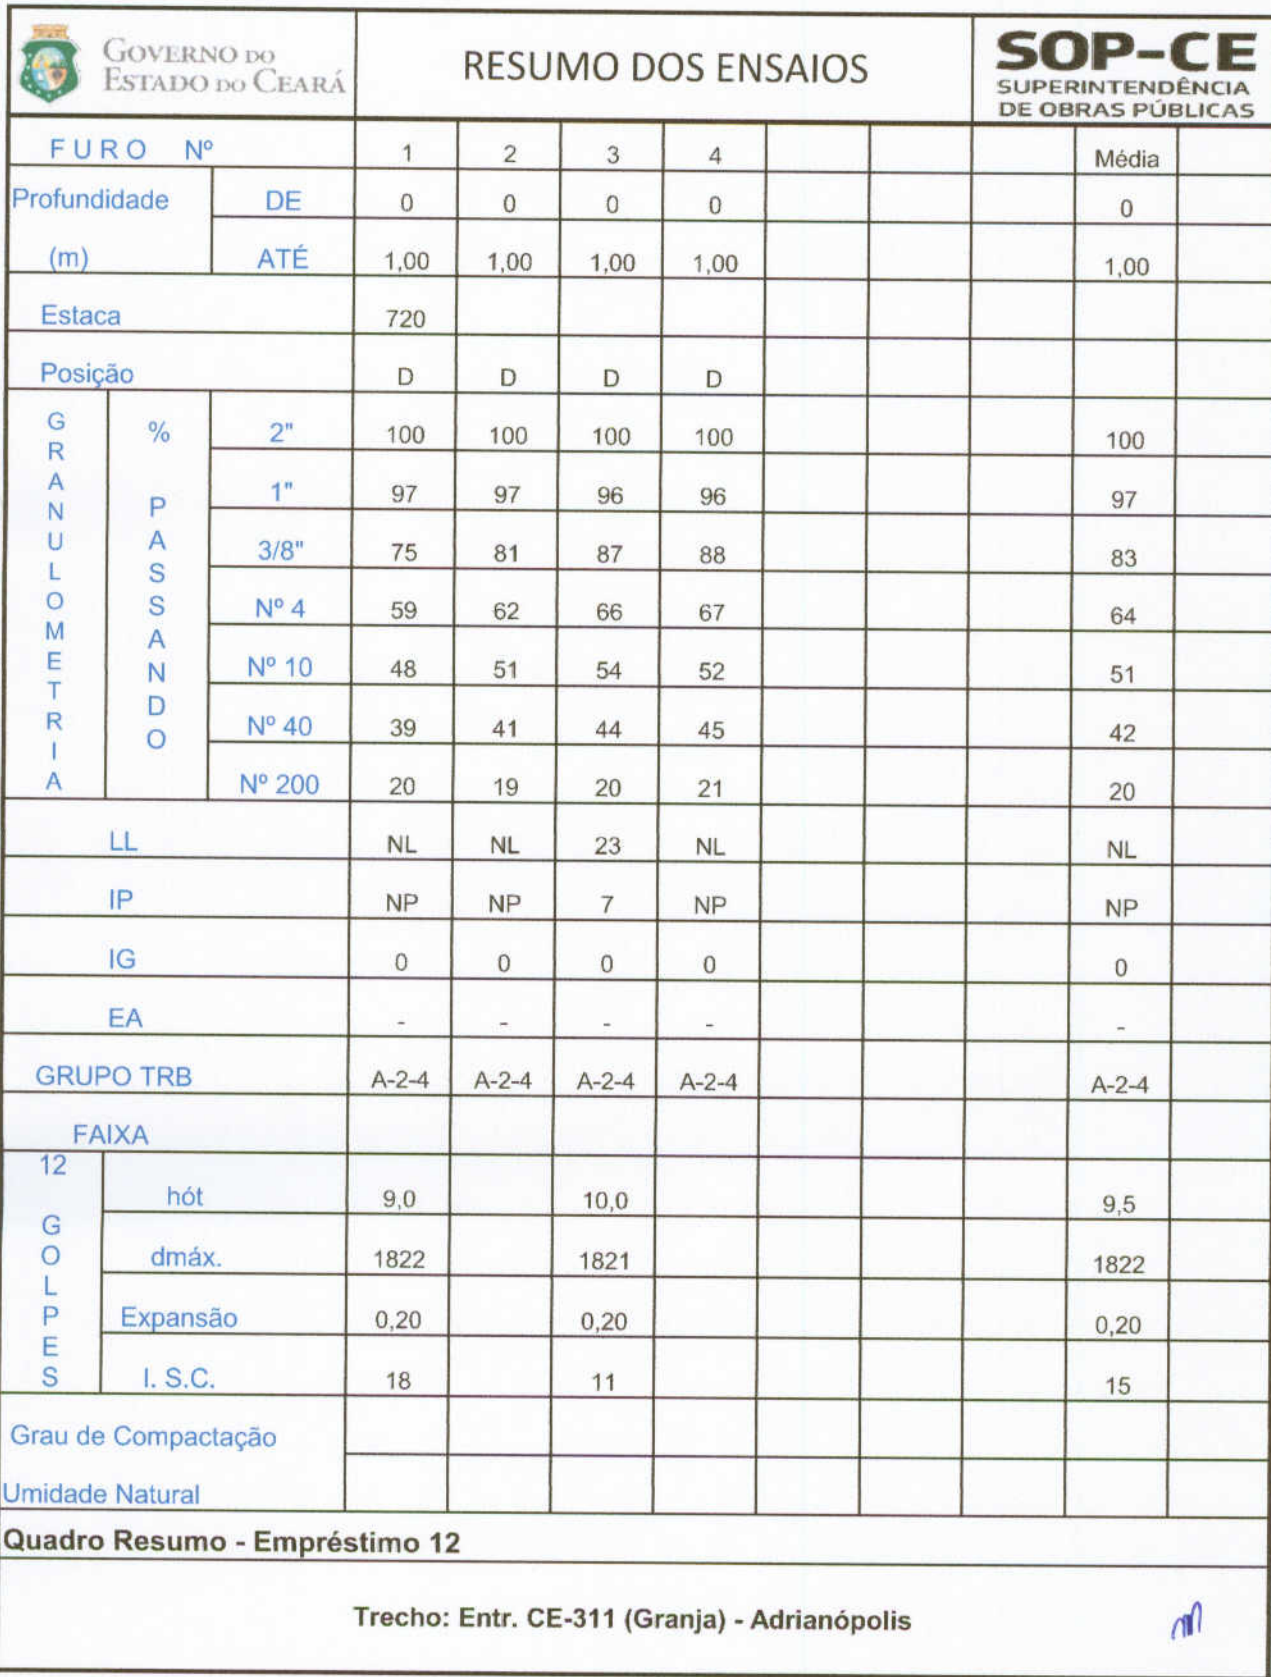 GOVERNO DO
ESTADO DO CEARÁ
RESUMO DOS ENSAIOS
SOP-CE
SUPERINTENDÊNCIA
DE OBRAS PÚBLICAS
FURO Nº 1 2 3 4 Média
Profundidade DE 0 0 0 0 0
(m) ATÉ 1,00 1,00 1,00 1,00 1,00
Estaca 720
Posição D D D D
GRANULOMETRIA
% PASSANDO
2" 100 100 100 100 100
1" 97 97 96 96 97
3/8" 75 81 87 88 83
Nº 4 59 62 66 67 64
Nº 10 48 51 54 52 51
Nº 40 39 41 44 45 42
Nº 200 20 19 20 21 20
LL NL NL 23 NL NL
IP NP NP 7 NP NP
IG 0 0 0 0 0
EA - - - - -
GRUPO TRB A-2-4 A-2-4 A-2-4 A-2-4 A-2-4
FAIXA
12 GOLPES
hót 9,0 10,0 9,5
dmáx. 1822 1821 1822
Expansão 0,20 0,20 0,20
I. S.C. 18 11 15
Grau de Compactação
Umidade Natural
Quadro Resumo - Empréstimo 12
Trecho: Entr. CE-311 (Granja) - Adrianópolis